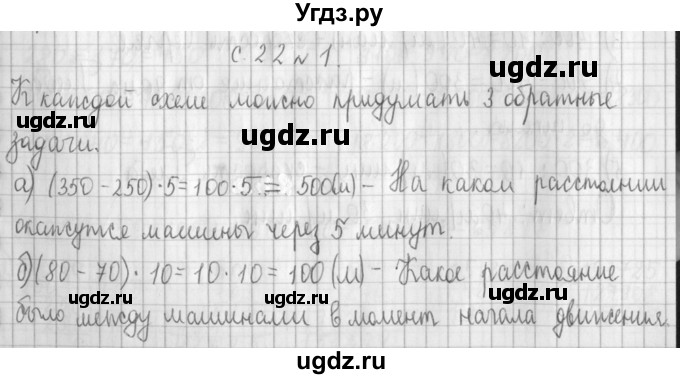 Угдз.ру
с. 22 № 1.
К каждой схеме можно придумать 3 обратные
задачи.
а) (350 – 250) · 5 = 100 · 5 = 500 (м) – На каком расстоянии
окажутся машины через 5 минут.
б) (80 – 70) · 10 = 10 · 10 = 100 (м) – Какое расстояние
было между машинами в момент начала движения.
ugdz.ru
ugdz.ru
ugdz.ru
ugdz.ru
ugdz.ru
ugdz.ru
ugdz.ru
ugdz.ru
ugdz.ru